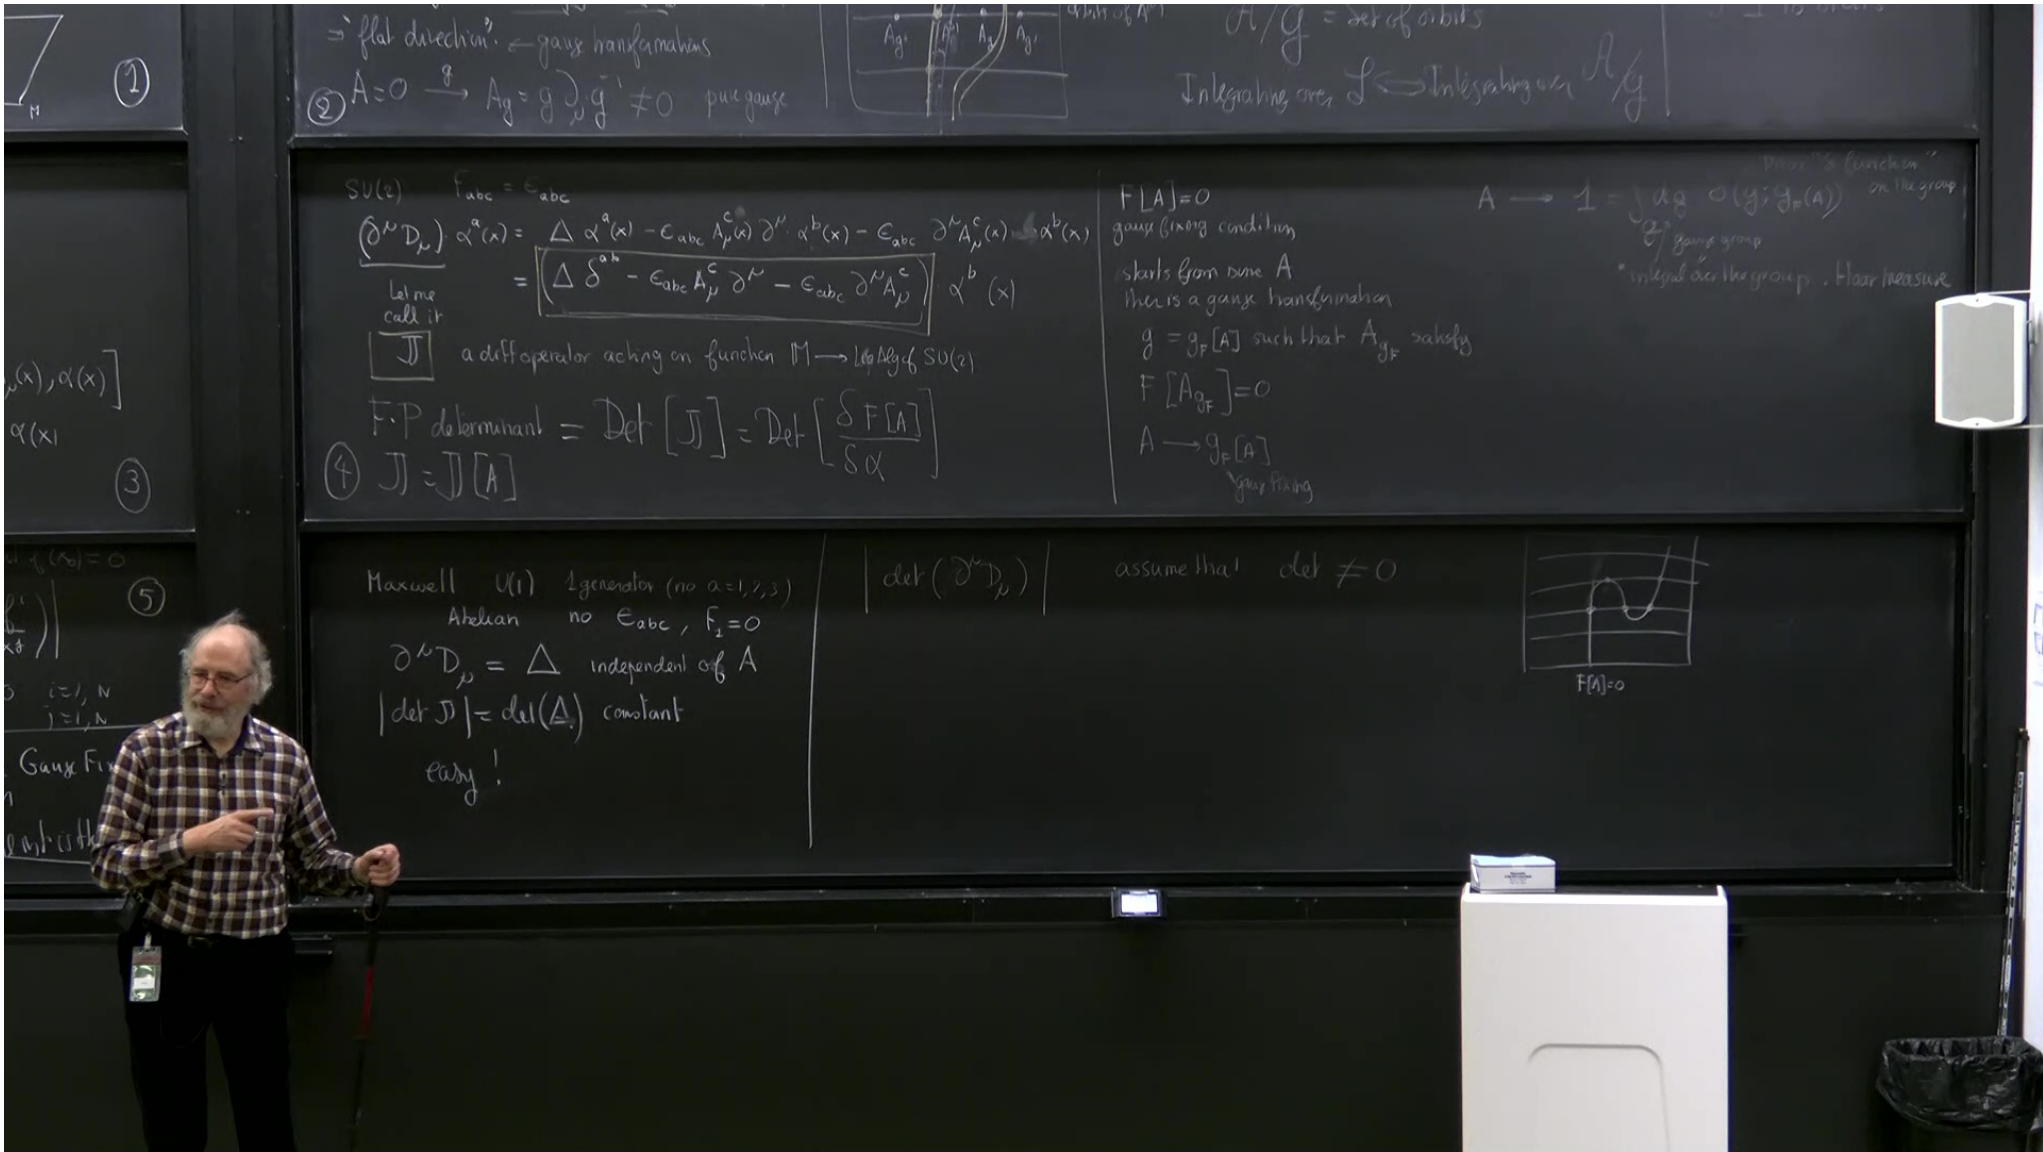 ⇒ "flat direction". ← gauge transformations
② A=0 →g A_g = g ∂_μ g⁻¹ ≠ 0 pure gauge
A_g' A_g A_g'
A/G = set of orbits
Integrating over ℒ ⟺ Integrating over A/G
①
M
SU(2) F_abc = ε_abc
(∂^μ D_μ)·α^a(x) = Δ α^a(x) − ε_abc A^c_μ(x) ∂^μ·α^b(x) − ε_abc ∂^μ A^c_μ(x) α^b(x)
= (Δ δ^ab − ε_abc A^c_μ ∂^μ − ε_abc ∂^μ A^c_μ)· α^b(x)
Let me
call it
𝕁 a diff operator acting on function M → Lie Alg of SU(2)
F.P determinant = Det [𝕁] = Det [δF[A]/δα]
④ 𝕁 = 𝕁[A]
F[A]=0
gauge fixing condition
starts from some A
there is a gauge transformation
g = g_F[A] such that A_g_F satisfy
F[A_g_F]=0
A → g_F[A]
gauge fixing
Dirac "δ function"
on the group
A → 1 = ∫ dg δ(g; g_F(A))
G gauge group
"integral over the group. Haar measure
μ(x), α(x)]
α(x)
③
f(x₀)=0
⑤
i=1, N
j=1, N
Gauge Fix
Maxwell U(1) 1 generator (no a=1,2,3)
Abelian no ε_abc, F_2=0
∂^μ D_μ = Δ independent of A
|det 𝕁| = det(Δ) constant
easy!
|det(∂^μ D_μ)| assume that det ≠ 0
F[A]=0